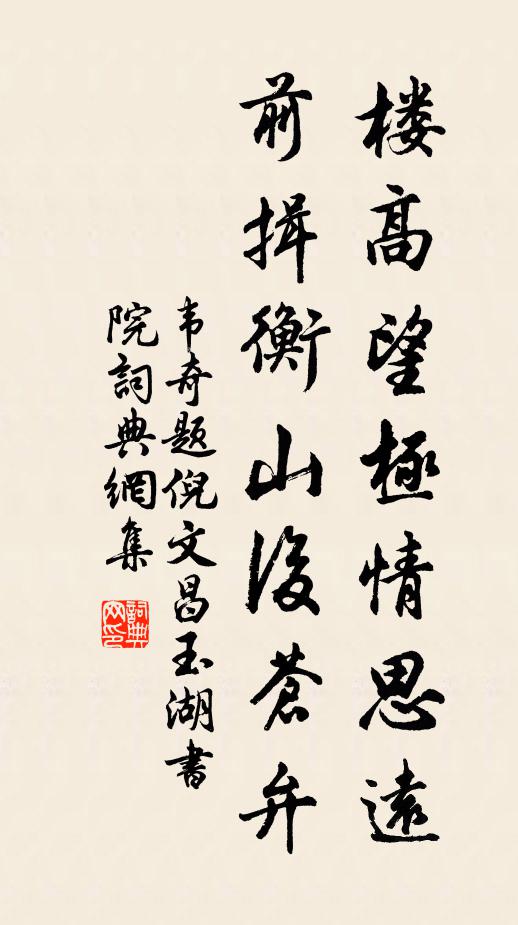 楼高望極情思遠
前揖衡山後蒼弁
韦奇题倪文昌玉湖書
院詞典網集
詞典网印